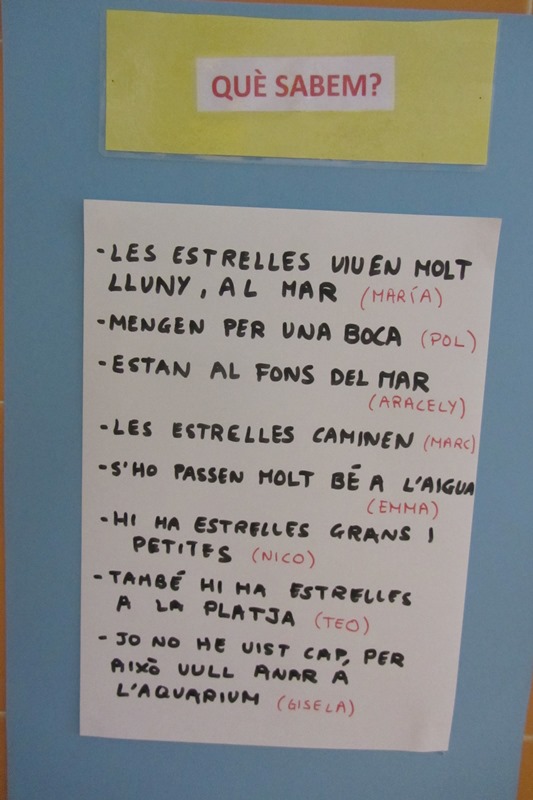 QUÈ SABEM?
-LES ESTRELLES VIUEN MOLT
LLUNY, AL MAR (MARÍA)
-MENGEN PER UNA BOCA (POL)
-ESTAN AL FONS DEL MAR
(ARACELY)
-LES ESTRELLES CAMINEN (MARC)
-S'HO PASSEN MOLT BÉ A L'AIGUA
(EMMA)
-HI HA ESTRELLES GRANS I
PETITES (NICO)
-TAMBÉ HI HA ESTRELLES
A LA PLATJA (TEO)
-JO NO HE VIST CAP, PER
AIXÒ VULL ANAR A
L'AQUARIUM (GISELA)